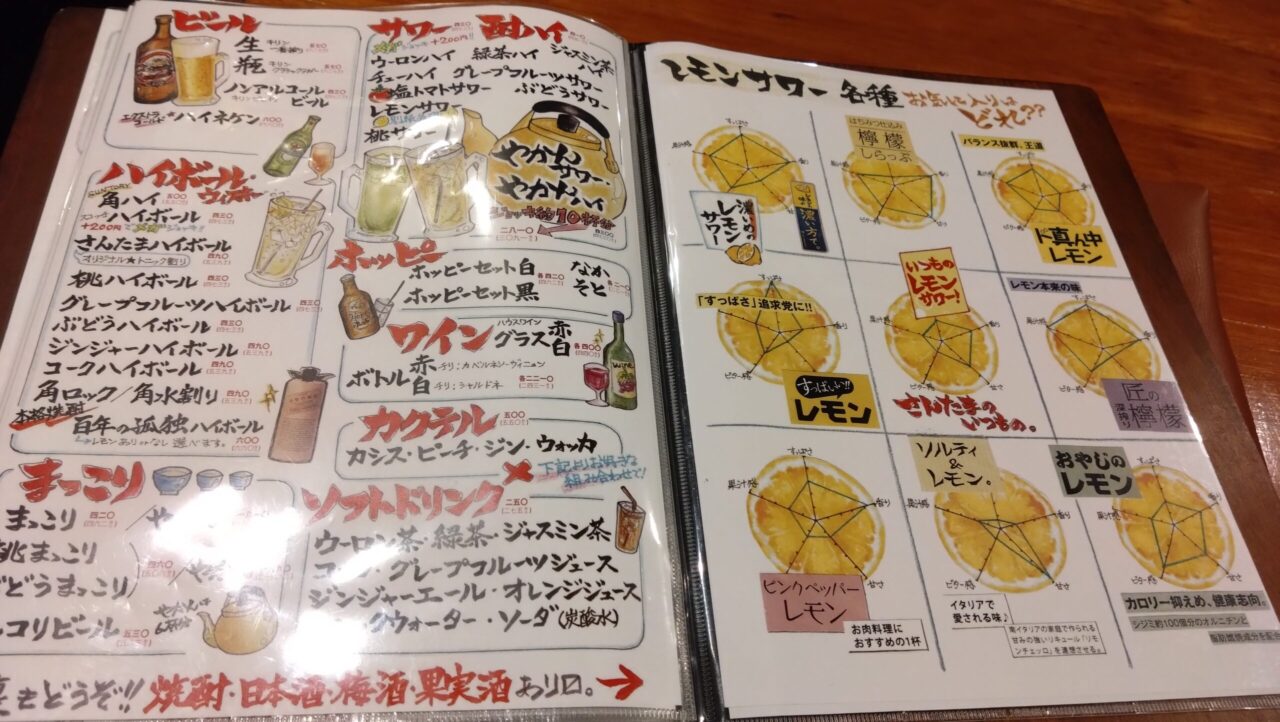 ビール
生 キリン 一番搾り 五七〇
瓶 キリン クラシックラガー 五七〇
ノンアルコール ビール
ハイネケン 六〇〇
サワー 酎ハイ
+200円!!
ウーロンハイ 緑茶ハイ ジャスミン茶ハイ
チューハイ グレープフルーツサワー
塩トマトサワー ぶどうサワー
レモンサワー
桃サワー
やかんサワー・
やかんハイ
ジョッキ約10杯分
二八一〇
(三〇九一)
ハイボール・
SUNTORY
角ハイ 五〇〇
ハイボール 四三〇
+200円
さんたまハイボール 四九〇
オリジナル★トニック割り
桃ハイボール 四三〇
グレープフルーツハイボール 四三〇
ぶどうハイボール 四三〇
ジンジャーハイボール 四九〇
コークハイボール 四九〇
角ロック/角水割り 四九〇
本格焼酎
百年の孤独ハイボール 六〇〇
レモンありorなし選べます。
ホッピー
ホッピーセット白 各四二〇 なか
ホッピーセット黒 そと
ワイン
ハウスワイン
グラス 赤 白 各四〇〇
ボトル 赤 白 チリ:カベルネ・ソーヴィニョン チリ:シャルドネ 各二二一〇
(二四三一)
カクテル 五〇〇
(五五〇)
カシス・ピーチ・ジン・ウォッカ
× 下記よりお好きな組み合わせで!
ソフトドリンク 二五〇
(二七五)
ウーロン茶・緑茶・ジャスミン茶
コーラ・グレープフルーツジュース
ジンジャーエール・オレンジジュース
ウォーター・ソーダ(炭酸水)
まっこり
まっこり 四二〇
桃まっこり 四六〇
ぶどうまっこり
コリビール 五三〇
もどうぞ!! 焼酎・日本酒・梅酒・果実酒あり〼。→
レモンサワー各種 お気に入りはどれ??
すっぱさ
果汁感
濃いめのレモンサワー
濃い方で。
はちみつ仕込み
檸檬
しらっぷ
ビター感
バランス抜群、王道
すっぱさ
果汁感
香り
ビター感
甘さ
ド真ん中レモン
「すっぱさ」追求党に!!
すっぱさ
香り
ビター感
すっぱいい!!
レモン
いつものレモンサワー!
果汁感
香り
ビター感
甘さ
さんたまのいつもの。
レモン本来の味
果汁感
香り
ビター感
匠の檸檬
深搾り
すっぱさ
果汁感
香り
甘さ
ピンクペッパー
レモン
お肉料理におすすめの1杯
ソルティ&レモン。
果汁感
香り
ビター感
甘さ
イタリアで愛される味♪
南イタリアの家庭で作られる甘みの強いリキュール「リモンチェッロ」を連想させる。
おやじのレモン
すっぱさ
果汁感
香り
ビター感
甘さ
カロリー抑えめ、健康志向。
シジミ約100個分のオルニチンと
脂肪燃焼成分を配合